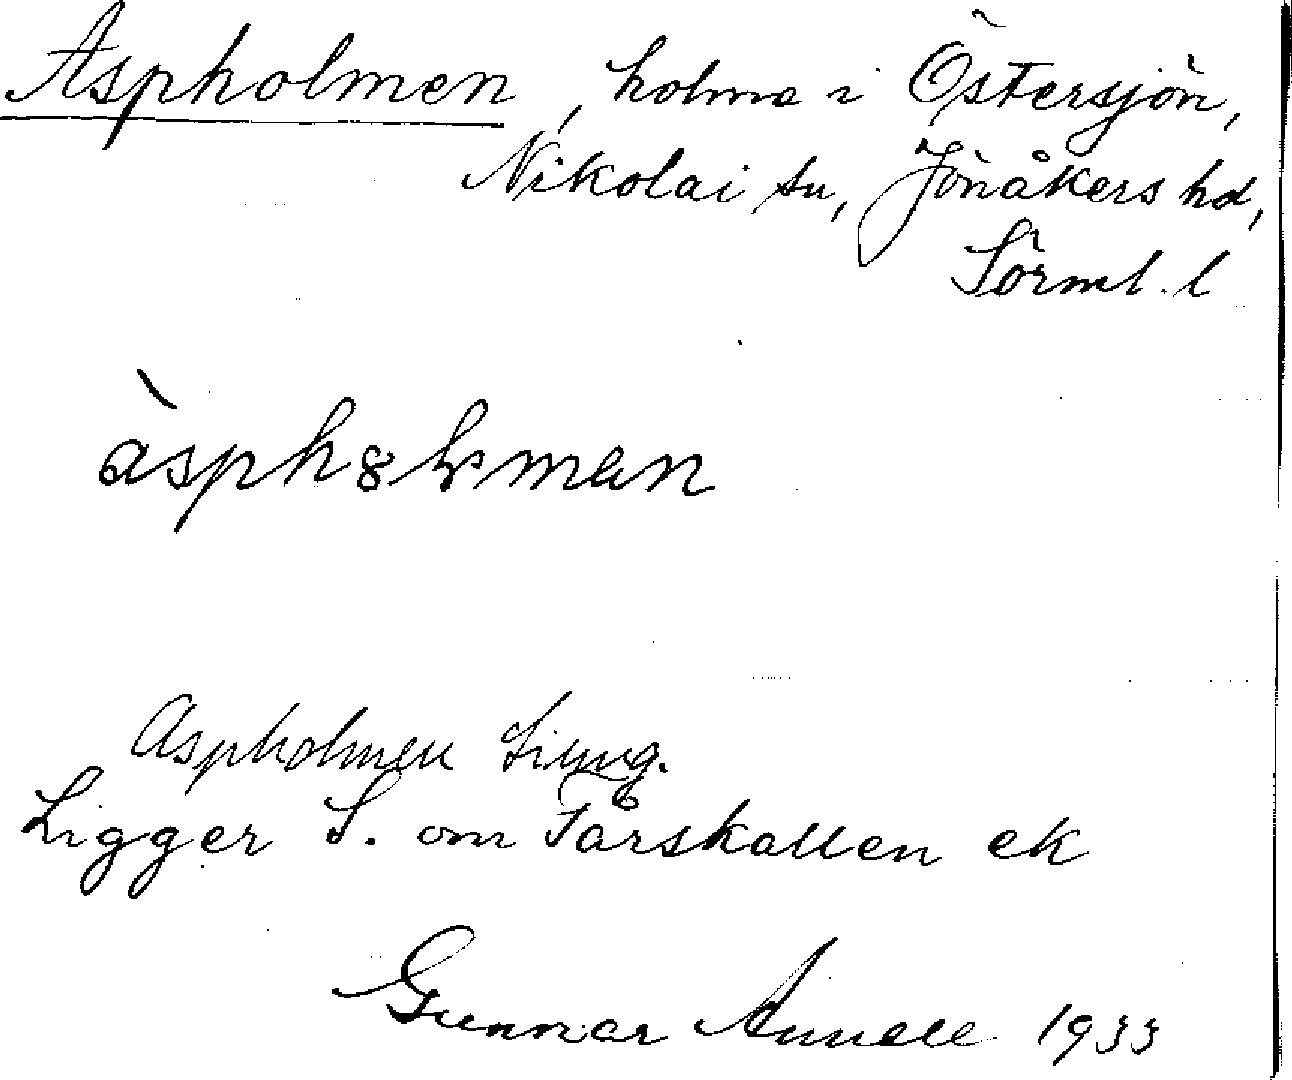 Aspholmen, holme i Östersjön,
Nikolai sn, Jönåkers hd,
Sörml. l
Aspholmen
Ligger S. om Fårskallen ek
Gunnar Annell 1933